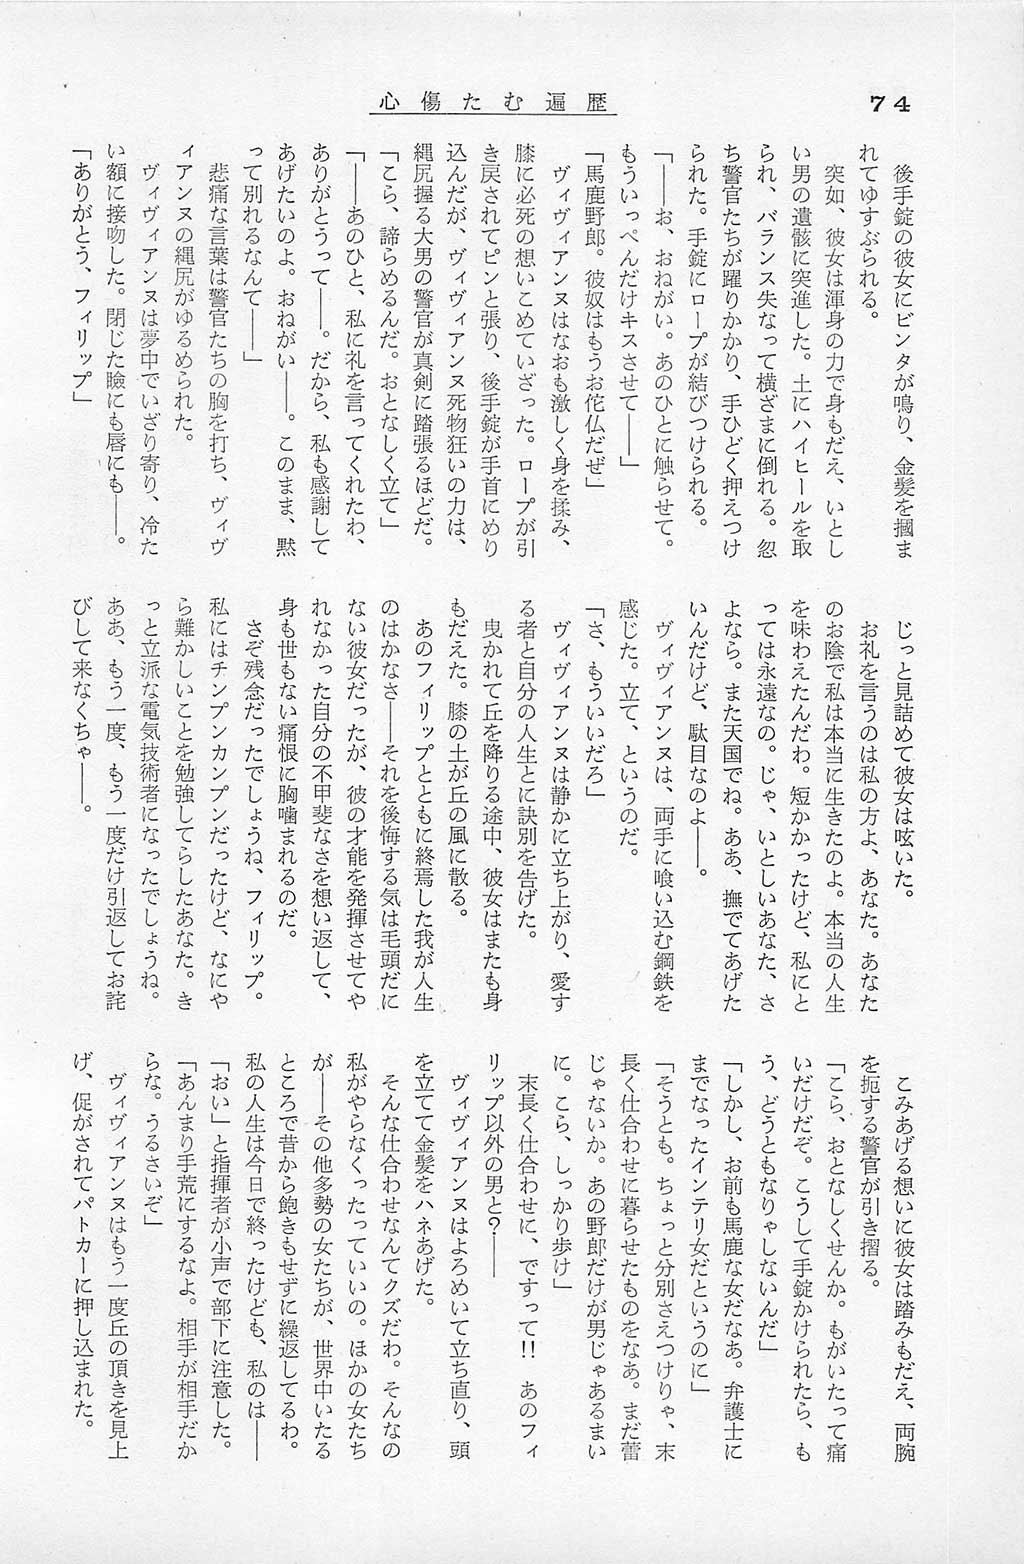 74
心傷たむ遍歴
後手錠の彼女にビンタが鳴り、金髪を摑ま
れてゆすぶられる。
突如、彼女は渾身の力で身もだえ、いとし
い男の遺骸に突進した。土にハイヒールを取
られ、バランス失なって横ざまに倒れる。忽
ち警官たちが躍りかかり、手ひどく押えつけ
られた。手錠にロープが結びつけられる。
「――お、おねがい。あのひとに触らせて。
もういっぺんだけキスさせて――」
「馬鹿野郎。彼奴はもうお佗仏だぜ」
ヴィヴィアンヌはなおも激しく身を揉み、
膝に必死の想いこめていざった。ロープが引
き戻されてピンと張り、後手錠が手首にめり
込んだが、ヴィヴィアンヌ死物狂いの力は、
縄尻握る大男の警官が真剣に踏張るほどだ。
「こら、諦らめるんだ。おとなしく立て」
「――あのひと、私に礼を言ってくれたわ、
ありがとうって――。だから、私も感謝して
あげたいのよ。おねがい――。このまま、黙
って別れるなんて――」
悲痛な言葉は警官たちの胸を打ち、ヴィヴ
ィアンヌの縄尻がゆるめられた。
ヴィヴィアンヌは夢中でいざり寄り、冷た
い額に接吻した。閉じた瞼にも唇にも――。
「ありがとう、フィリップ」
じっと見詰めて彼女は呟いた。
お礼を言うのは私の方よ、あなた。あなた
のお陰で私は本当に生きたのよ。本当の人生
を味わえたんだわ。短かかったけど、私にと
っては永遠なの。じゃ、いとしいあなた、さ
よなら。また天国でね。ああ、撫でてあげた
いんだけど、駄目なのよ――。
ヴィヴィアンヌは、両手に喰い込む鋼鉄を
感じた。立て、というのだ。
「さ、もういいだろ」
ヴィヴィアンヌは静かに立ち上がり、愛す
る者と自分の人生とに訣別を告げた。
曳かれて丘を降りる途中、彼女はまたも身
もだえた。膝の土が丘の風に散る。
あのフィリップとともに終焉した我が人生
のはかなさ――それを後悔する気は毛頭だに
ない彼女だったが、彼の才能を発揮させてや
れなかった自分の不甲斐なさを想い返して、
身も世もない痛恨に胸嚙まれるのだ。
さぞ残念だったでしょうね、フィリップ。
私にはチンプンカンプンだったけど、なにや
ら難かしいことを勉強してらしたあなた。き
っと立派な電気技術者になったでしょうね。
ああ、もう一度、もう一度だけ引返してお詫
びして来なくちゃ――。
こみあげる想いに彼女は踏みもだえ、両腕
を扼する警官が引き摺る。
「こら、おとなしくせんか。もがいたって痛
いだけだぞ。こうして手錠かけられたら、も
う、どうともなりゃしないんだ」
「しかし、お前も馬鹿な女だなあ。弁護士に
までなったインテリ女だというのに」
「そうとも。ちょっと分別さえつけりゃ、末
長く仕合わせに暮らせたものをなあ。まだ蕾
じゃないか。あの野郎だけが男じゃあるまい
に。こら、しっかり歩け」
末長く仕合わせに、ですって!!　あのフィ
リップ以外の男と？――
ヴィヴィアンヌはよろめいて立ち直り、頭
を立てて金髪をハネあげた。
そんな仕合わせなんてクズだわ。そんなの
私がやらなくったっていいの。ほかの女たち
が――その他多勢の女たちが、世界中いたる
ところで昔から飽きもせずに繰返してるわ。
私の人生は今日で終ったけども、私のは――
「おい」と指揮者が小声で部下に注意した。
「あんまり手荒にするなよ。相手が相手だか
らな。うるさいぞ」
ヴィヴィアンヌはもう一度丘の頂きを見上
げ、促がされてパトカーに押し込まれた。